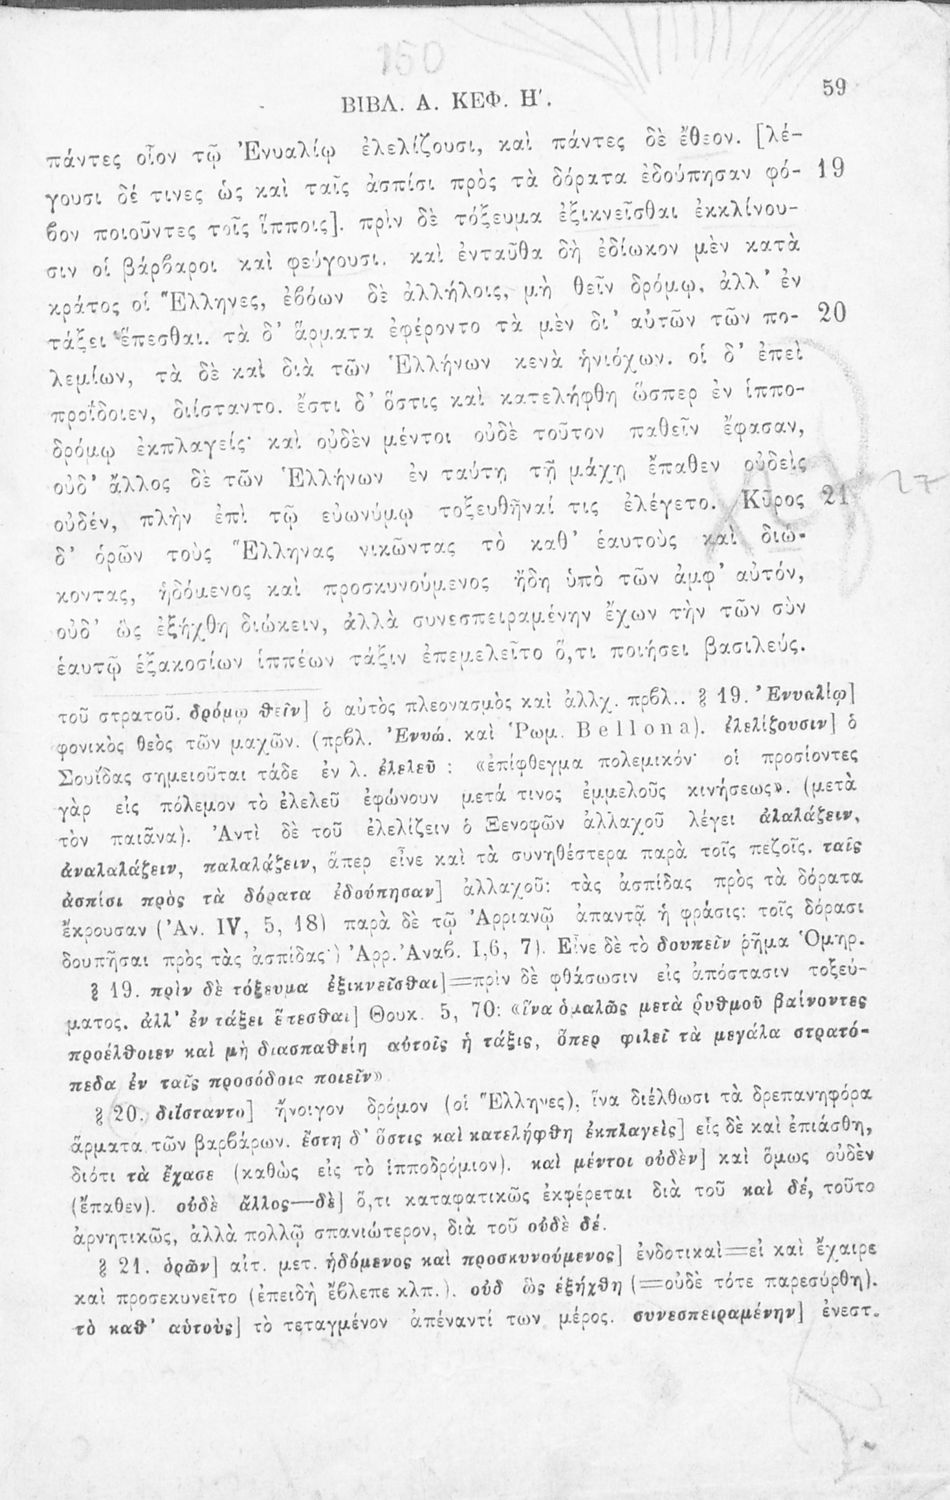 150
ΒΙΒΛ. Α. ΚΕΦ. Η΄. 59
πάντες οἷον τῷ Ἐνυαλίῳ ἐλελίζουσι, καὶ πάντες δὲ ἔθεον. [λέ-
γουσι δέ τινες ὡς καὶ ταῖς ἀσπίσι πρὸς τὰ δόρατα ἐδούπησαν φό- 19
βον ποιοῦντες τοῖς ἵπποις]. πρὶν δὲ τόξευμα ἐξικνεῖσθαι ἐκκλίνου-
σιν οἱ βάρβαροι καὶ φεύγουσι. καὶ ἐνταῦθα δὴ ἐδίωκον μὲν κατὰ
κράτος οἱ Ἕλληνες, ἐβόων δὲ ἀλλήλοις, μὴ θεῖν δρόμῳ, ἀλλ’ ἐν
τάξει ἕπεσθαι. τὰ δ’ ἅρματα ἐφέροντο τὰ μὲν δι’ αὐτῶν τῶν πο- 20
λεμίων, τὰ δὲ καὶ διὰ τῶν Ἑλλήνων κενὰ ἡνιόχων. οἱ δ’ ἐπεὶ
προΐδοιεν, διίσταντο. ἔστι δ’ ὅστις καὶ κατελήφθη ὥσπερ ἐν ἱππο-
δρόμῳ ἐκπλαγείς· καὶ οὐδὲν μέντοι οὐδὲ τοῦτον παθεῖν ἔφασαν,
οὐδ’ ἄλλος δὲ τῶν Ἑλλήνων ἐν ταύτῃ τῇ μάχῃ ἔπαθεν οὐδεὶς
οὐδέν, πλὴν ἐπὶ τῷ εὐωνύμῳ τοξευθῆναί τις ἐλέγετο. Κῦρος 21 27
δ’ ὁρῶν τοὺς Ἕλληνας νικῶντας τὸ καθ’ ἑαυτοὺς καὶ διώ-
κοντας, ἡδόμενος καὶ προσκυνούμενος ἤδη ὑπὸ τῶν ἀμφ’ αὐτόν,
οὐδ’ ὣς ἐξήχθη διώκειν, ἀλλὰ συνεσπειραμένην ἔχων τὴν τῶν σὺν
ἑαυτῷ ἑξακοσίων ἱππέων τάξιν ἐπεμελεῖτο ὅ,τι ποιήσει βασιλεύς.
τοῦ στρατοῦ. δρόμῳ θεῖν] ὁ αὐτὸς πλεονασμὸς καὶ ἀλλχ. πρβλ.. § 19. Ἐνυαλίῳ]
φονικὸς θεὸς τῶν μαχῶν. (πρβλ. Ἐνυώ. καὶ Ῥωμ. Bellona). ἐλελίξουσιν] ὁ
Σουΐδας σημειοῦται τάδε ἐν λ. ἐλελεῦ : «ἐπίφθεγμα πολεμικόν· οἱ προσίοντες
γὰρ εἰς πόλεμον τὸ ἐλελεῦ ἐφώνουν μετά τινος ἐμμελοῦς κινήσεως». (μετὰ
τὸν παιᾶνα). Ἀντὶ δὲ τοῦ ἐλελίζειν ὁ Ξενοφῶν ἀλλαχοῦ λέγει ἀλαλάζειν,
ἀναλαλάξειν, παλαλάξειν, ἅπερ εἶνε καὶ τὰ συνηθέστερα παρὰ τοῖς πεζοῖς. ταῖς
ἀσπίσι πρὸς τὰ δόρατα ἐδούπησαν] ἀλλαχοῦ: τὰς ἀσπίδας πρὸς τὰ δόρατα
ἔκρουσαν (Ἀν. IV, 5, 18) παρὰ δὲ τῷ Ἀρριανῷ ἀπαντᾷ ἡ φράσις: τοῖς δόρασι
δουπῆσαι πρὸς τὰς ἀσπίδας·) Ἀρρ. Ἀναβ. I,6, 7). Εἶνε δὲ τὸ δουπεῖν ῥῆμα Ὁμηρ.
§ 19. πρὶν δὲ τόξευμα ἐξικνεῖσθαι]=πρὶν δὲ φθάσωσιν εἰς ἀπόστασιν τοξεύ-
ματος. ἀλλ’ ἐν τάξει ἕτεσθαι] Θουκ. 5, 70: «ἵνα ὁμαλῶς μετὰ ῥυθμοῦ βαίνοντες
προέλθοιεν καὶ μὴ διασπαθείη αὐτοῖς ἡ τάξις, ὅπερ φιλεῖ τὰ μεγάλα στρατό-
πεδα ἐν ταῖς προσόδοις ποιεῖν»
§ 20. διΐσταντο] ἤνοιγον δρόμον (οἱ Ἕλληνες), ἵνα διέλθωσι τὰ δρεπανηφόρα
ἅρματα τῶν βαρβάρων. ἔστη δ’ ὅστις καὶ κατελήφθη ἐκπλαγεὶς] εἷς δὲ καὶ ἐπιάσθη,
διότι τὰ ἔχασε (καθὼς εἰς τὸ ἱπποδρόμιον). καὶ μέντοι οὐδὲν] καὶ ὅμως οὐδὲν
(ἔπαθεν). οὐδὲ ἄλλος—δὲ] ὅ,τι καταφατικῶς ἐκφέρεται διὰ τοῦ καὶ δέ, τοῦτο
ἀρνητικῶς, ἀλλὰ πολλῷ σπανιώτερον, διὰ τοῦ οὐδὲ δέ.
§ 21. ὁρῶν] αἰτ. μετ. ἡδόμενος καὶ προσκυνούμενος] ἐνδοτικαὶ=εἰ καὶ ἔχαιρε
καὶ προσεκυνεῖτο (ἐπειδὴ ἔβλεπε κλπ.). οὐδ ὣς ἐξήχθη (=οὐδὲ τότε παρεσύρθη).
τὸ καθ’ αὑτοὺς] τὸ τεταγμένον ἀπέναντί των μέρος. συνεσπειραμένην] ἐνεστ.